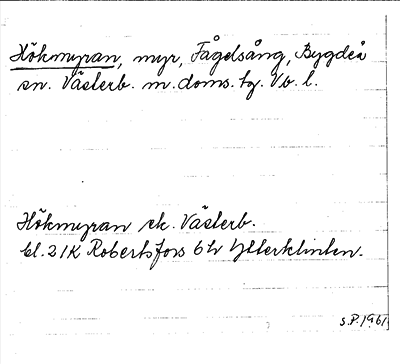 Hökmyran, myr, Fågelsång, Bygdeå
sn. Västerb. m. doms. tg. Vb. l.
Hökmyran ek. Västerb.
bl. 21K Robertsfors 6 h Ytterklinten.
S.P. 1961